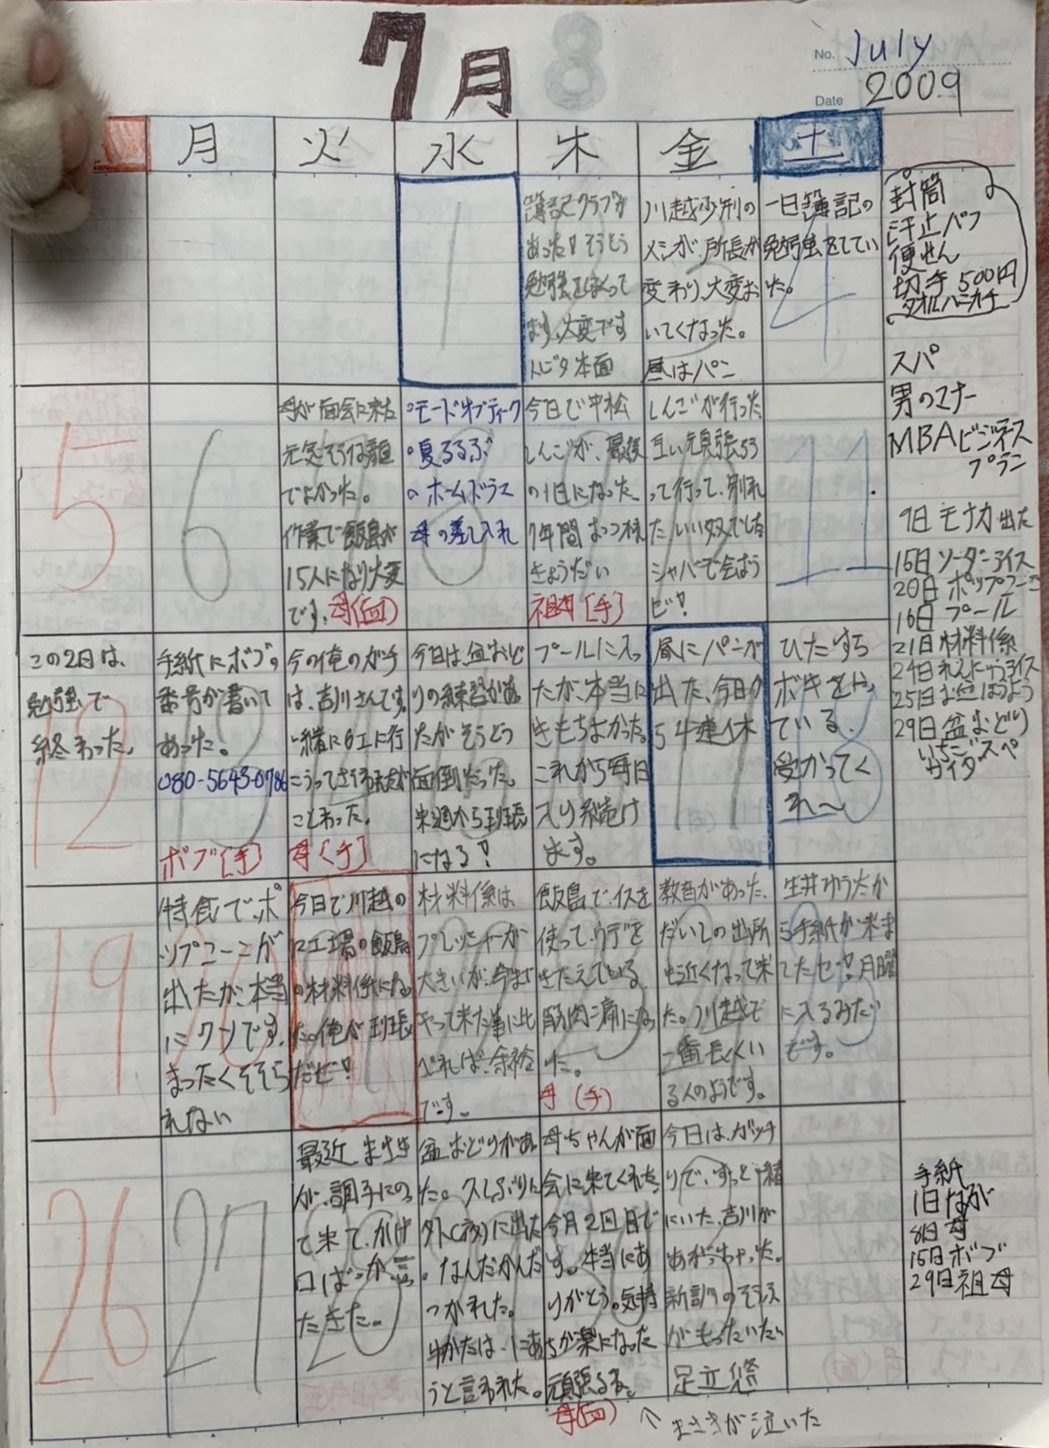 7月
No. July
Date 2009
月 火 水 木 金 土
1
簿記クラブが
あった!そうとう
勉強をぼくって
ます、大変です
川越少刑の
メシが、所長が
変わり、大変お
いてくなった。
昼はパン
4
一日簿記の
勉強をしてい
た。
封筒
汗止パフ
便せん
切手 500円
タオルハンカチ
スパ
男のマナー
MBAビジネス
プラン
5
6
母が面会に来た
元気そうな顔
でよかった。
作業で飯島が
15人になり大変
です、母(面)
8
○モードオブティーク
○夏るるぶ
○ホームドラマ
母の差し入れ
今日で平松
しんごが、最後
の1日になった、
きょうだい
祖母[手]
10
しんごが行った、
互い頑張ろう
って行って、別れ
た、いい奴でした
シャバで会おう
ゼ!
11
9日モナカ出た
15日ソーダーアイス
20日ポップコーン
16日プール
21日材料係
29日盆おどり
サイダー
12
この2日は、
勉強で
終わった。
13
手紙にボブの
番号が書いて
あった。
080-5643-0786
ボブ[手]
今の俺のガチ
は、吉川さんです。
一緒に6工に行
ことわった。
母[手]
今日は、盆おど
りの練習があ
ったがそうとう
面倒だった。
来週から班長
になる!
プールに入っ
たが、本当に
きもちよかった。
これから毎日
入り続け
ます。
17
昼にパンが
出た、今日か
ら4連休
18
ひたすら
ボキをやっ
ている。
受かってく
れ〜
19
20
特食で、ポ
ップコーンが
出たが、本当
にクソです。
まったくそそら
れない
今日で川越の
12工場の飯島
の材料係にな
った。俺が班長
だぜ!
材料係は
プレッシャーが
大きいが、今まで
やって来た事に比
べれば、余裕
です。
23
飯島でイスを
使って、ウデを
きたえている。
筋肉痛になっ
た。
母(手)
教育があった、
だいしの出所
も近くなって来
た。川越で
一番長くい
る人のようです。
25
生井ゆうたか
ら手紙が来ま
したゼ!月曜
に入るみたい
です。
26
27
28
最近まさき
が、調子にの
って来て、かげ
口ばっか言っ
たきた。
盆おどりがあっ
た。久しぶりに
外(夜)に出た
。なんだかんだ
つかれた。
うと言われた。
母ちゃんが面
会に来てくれた、
今月2回目で
す。本当にあ
りがとう。気持
ちが楽になった
頑張るね。
母(面)
今日は、ガッチ
りで、ずっと一緒
にいた、吉川が
あがっちゃった。
足立悠
↑ まさきが泣いた
手紙
8日母
15日ボブ
29日祖母